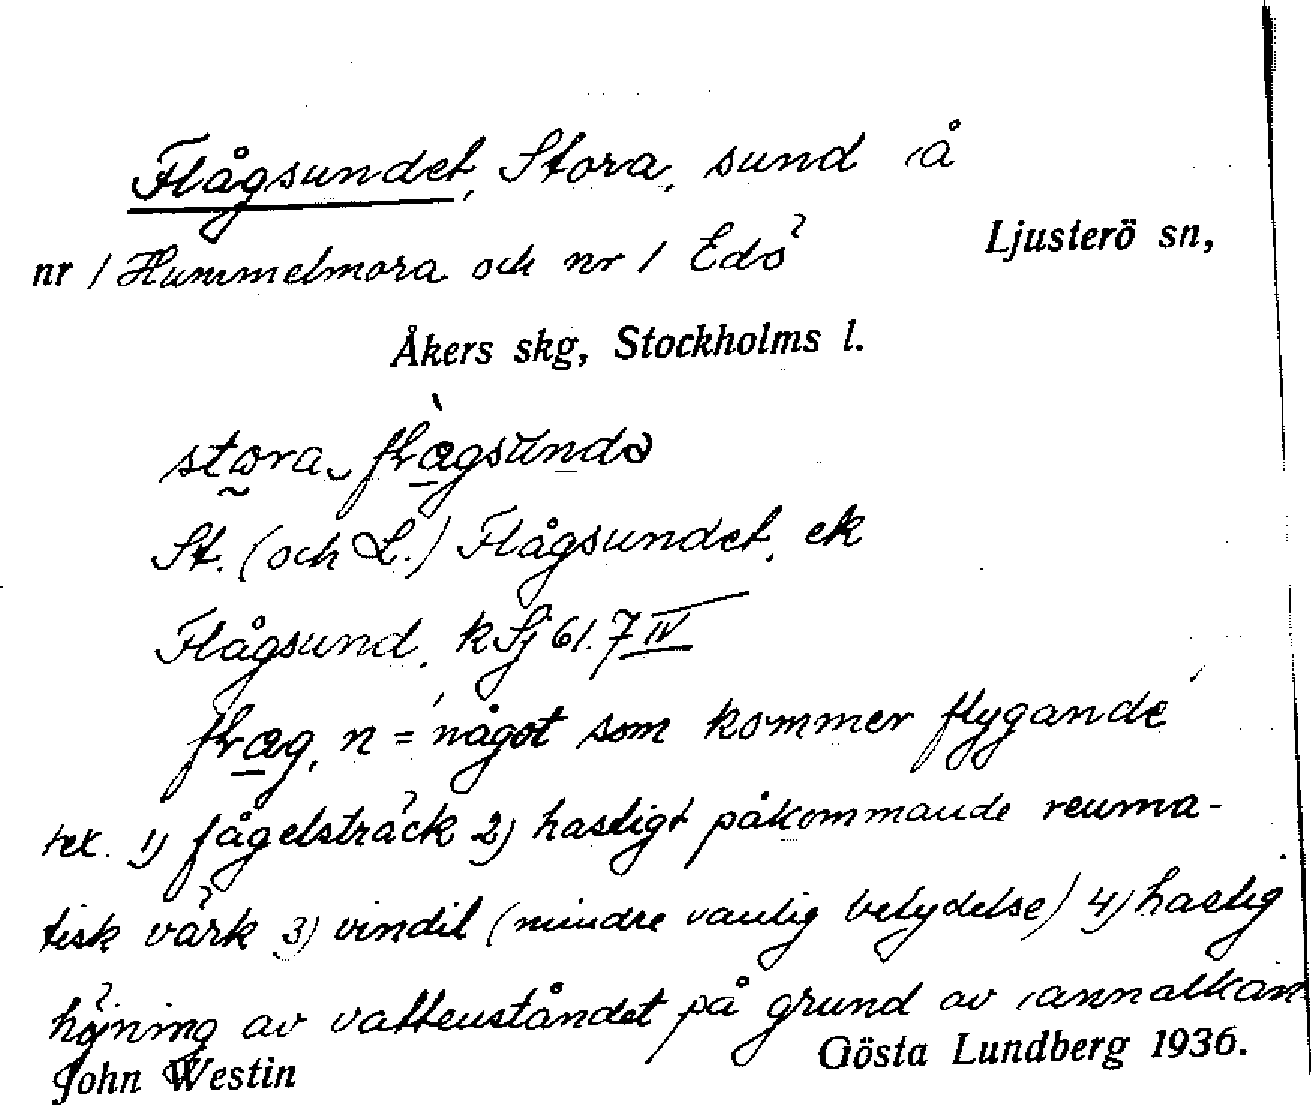 Flågsundet, Stora, sund å
nr 1 Hummelmora och nr 1 Edö
Ljusterö sn,
Åkers skg, Stockholms l.
stora
St. (och L.) Flågsundet, ek
Flågsund, k Sj 61. 7 IV
n = 'något som kommer flygande'
1) fågelsträck 2) hastigt påkommande reuma-
tisk värk 3) vindil (mindre vanlig betydelse) 4) hastig
höjning av vattenståndet på grund av annalkan
John Westin
Gösta Lundberg 1936.